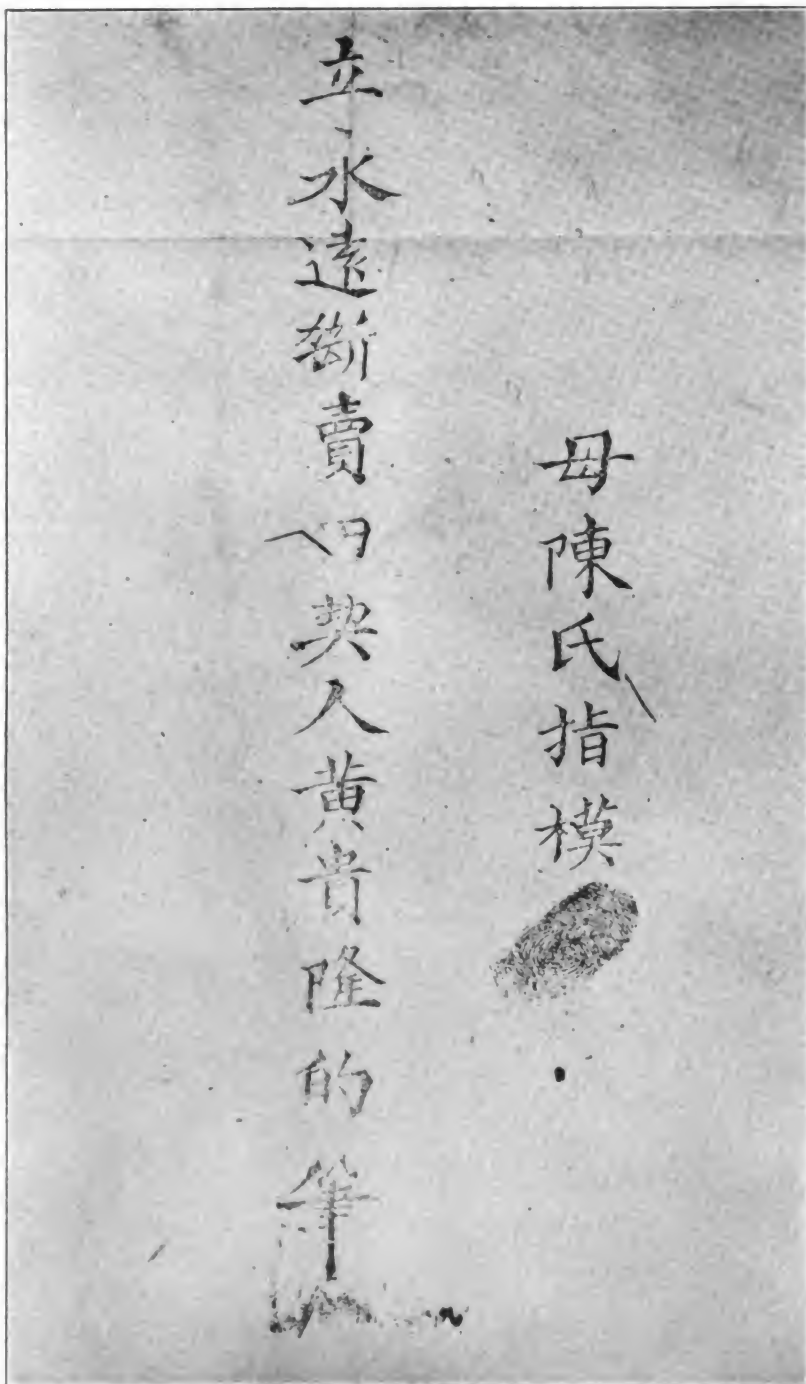 母陳氏指模
立永遠斷賣田契人黃貴隆的筆